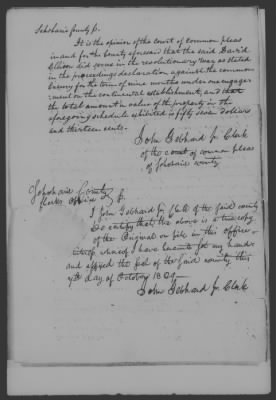 Schoharie County ss.
It is the opinion of the court of common pleas
in and for the county aforesaid that the said David
Ellison did serve in the revolutionary war as stated
in the preceeding declaration against the common
Enemy for the term of nine months under an engage
ment on the continental establishment, and that
the total amount in value of the property in the
aforegoing schedule exhibited is fifty seven dollars
and thirteen cents.
John Gebhard Jr Clerk
of the court of common pleas
of Schoharie county
Schoharie County
Clerks Office ss.
I John Gebhard Jr Clerk of the said county
Do certify that the above is a true copy
of the Original on file in this office
whereof I have hereunto set my hand
and affixed the seal of the said county this
day of October 1820
John Gebhard Jr Clerk